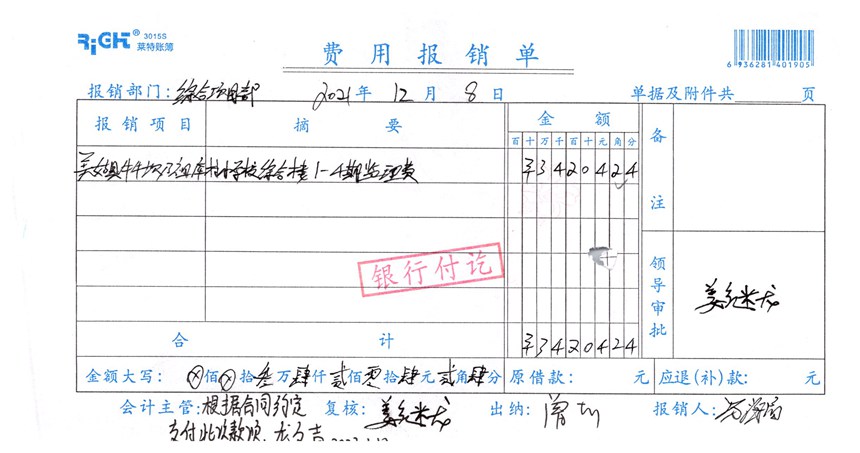 RiGHT® 3015S
莱特账簿
费用报销单
6 936281 401905
报销部门：综合项目部 2021年 12月 8日 单据及附件共 页
报销项目 摘要 金额 备注
百十万千百十元角分
美姑县牛牛坝乃祖库村小学校综合楼1-4期监理费 ¥3420424
银行付讫
领导审批 姜继龙
合计 ¥3420424
金额大写：ⓧ佰ⓧ拾叁万肆仟贰佰零拾肆元贰角肆分 原借款： 元 应退(补)款： 元
会计主管：根据合同约定 复核： 出纳：曾 报销人：
支付此次款项。